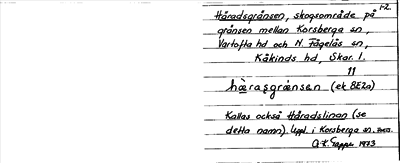 1-2.
Häradsgränsen, skogsområde på
gränsen mellan Korsberga sn,
Vartofta hd och N. Fågelås sn,
Kåkinds hd, Skar. l.
11
hæ̀rasgrænsen (ek BE2a)
Kallas också Häradslinan (se
detta namn). Uppl. i Korsberga sn.
1973